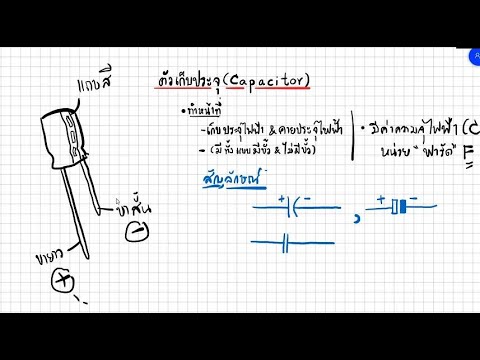 ตัวเก็บประจุ (Capacitor)
แถบสี
• ทำหน้าที่
- เก็บประจุไฟฟ้า & คายประจุไฟฟ้า
- (มีทั้งแบบมีขั้ว & ไม่มีขั้ว)
• มีค่าความจุไฟฟ้า (C
หน่วย "ฟารัด" F
สัญลักษณ์
+ -
, + -
ขาสั้น
-
ขายาว
+